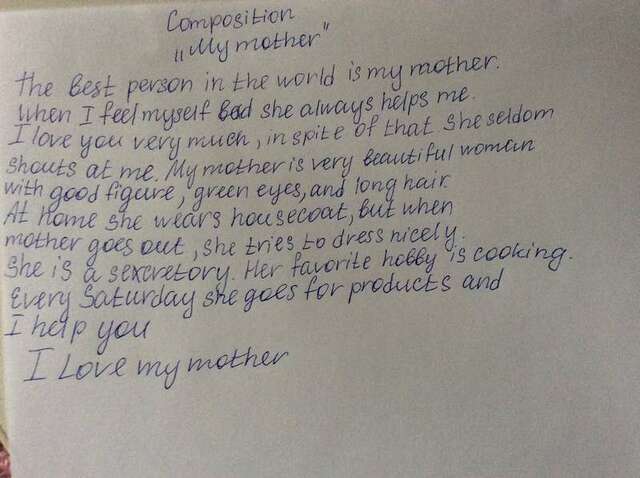 Composition
„My mother"
The Best person in the world is my mother.
When I feel myself bad she always helps me.
I love you very much, in spite of that she seldom
shouts at me. My mother is very beautiful woman
with good figure, green eyes, and long hair.
At home she wears housecoat, but when
mother goes out, she tries to dress nicely.
She is a sexcretory. Her favorite hobby is cooking.
Every Saturday she goes for products and
I help you
I Love my mother